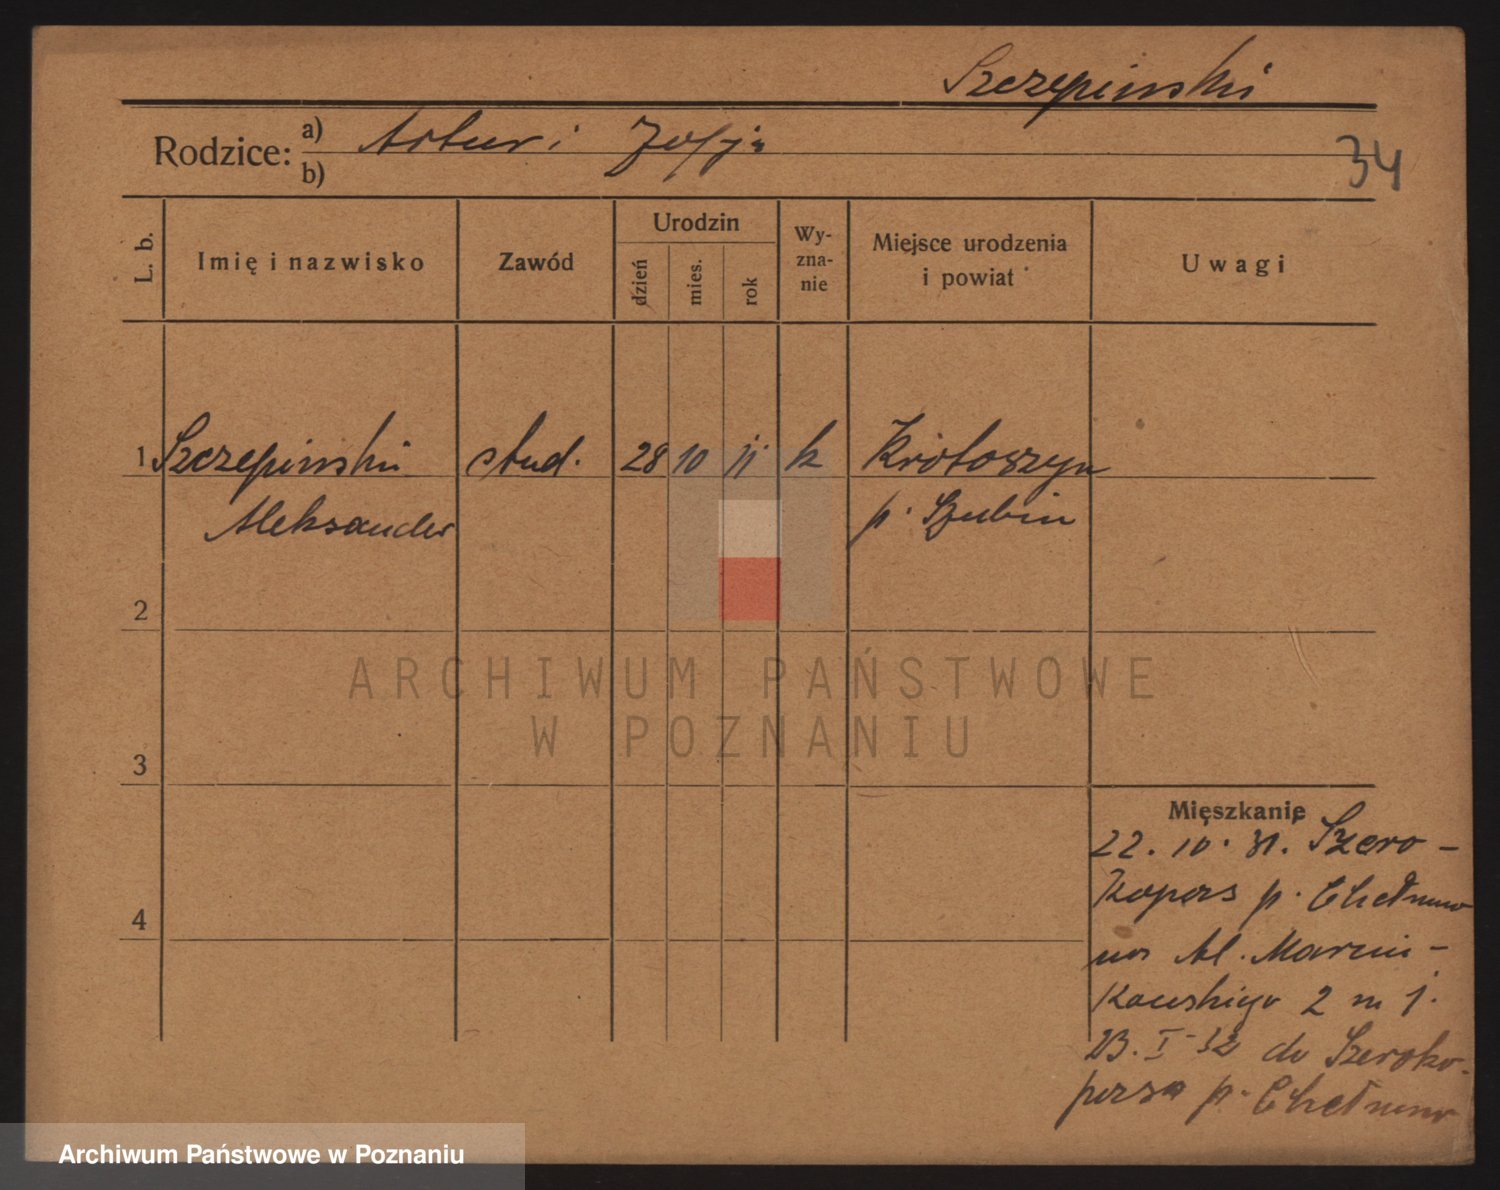 Szczepiński
Rodzice: a) Artur i Zofja
b)
34
L. b.
Imię i nazwisko
Zawód
Urodzin
dzień
mies.
rok
Wy-
zna-
nie
Miejsce urodzenia
i powiat
Uwagi
1 Szczepiński stud. 28 10 11 k Krotoszyn
Aleksander p. Szubin
2
3
4
Mieszkanie
22. 10. 31. Szero-
kopas p. Chełmno
na Al. Marcin-
kowskiego 2 m 1.
23. I 32 do Szeroko-
pasa p. Chełmno
ARCHIWUM PAŃSTWOWE
W POZNANIU
Archiwum Państwowe w Poznaniu